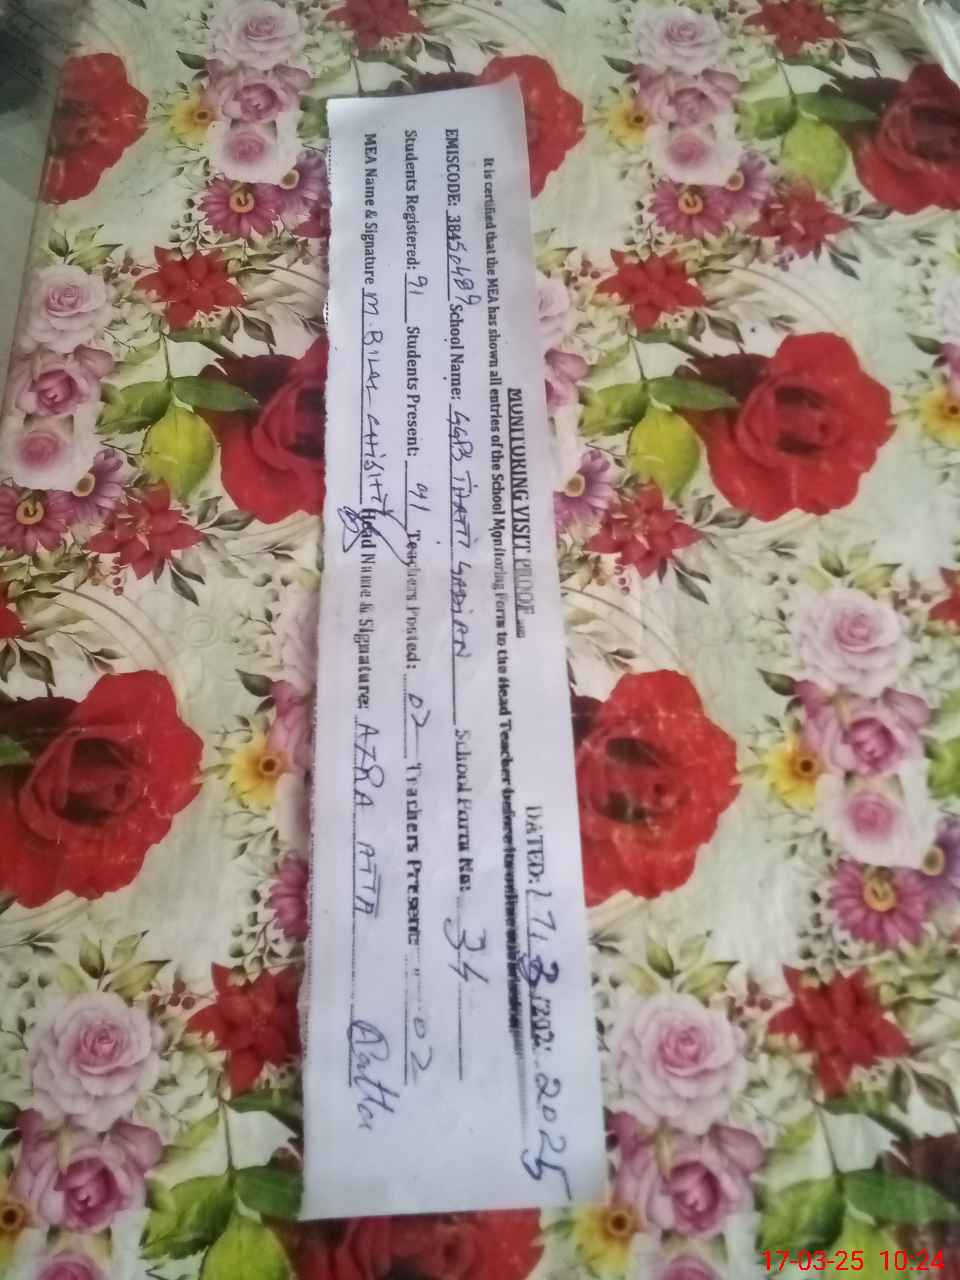 MONITORING VISIT PROOF
DATED: 17.3.202 2025
It is certified that the MEA has shown all entries of the School Monitoring Form to the Head Teacher before its online
EMISCODE: 38450489 School Name: GGPS THATTI School Form No: 34
Students Registered: 91 Students Present: 91 Teachers Posted: 02 Teachers Present: 02
MEA Name & Signature M. BILAL CHISHTY Head Name & Signature: AZRA ATTA
17-03-25 10:24